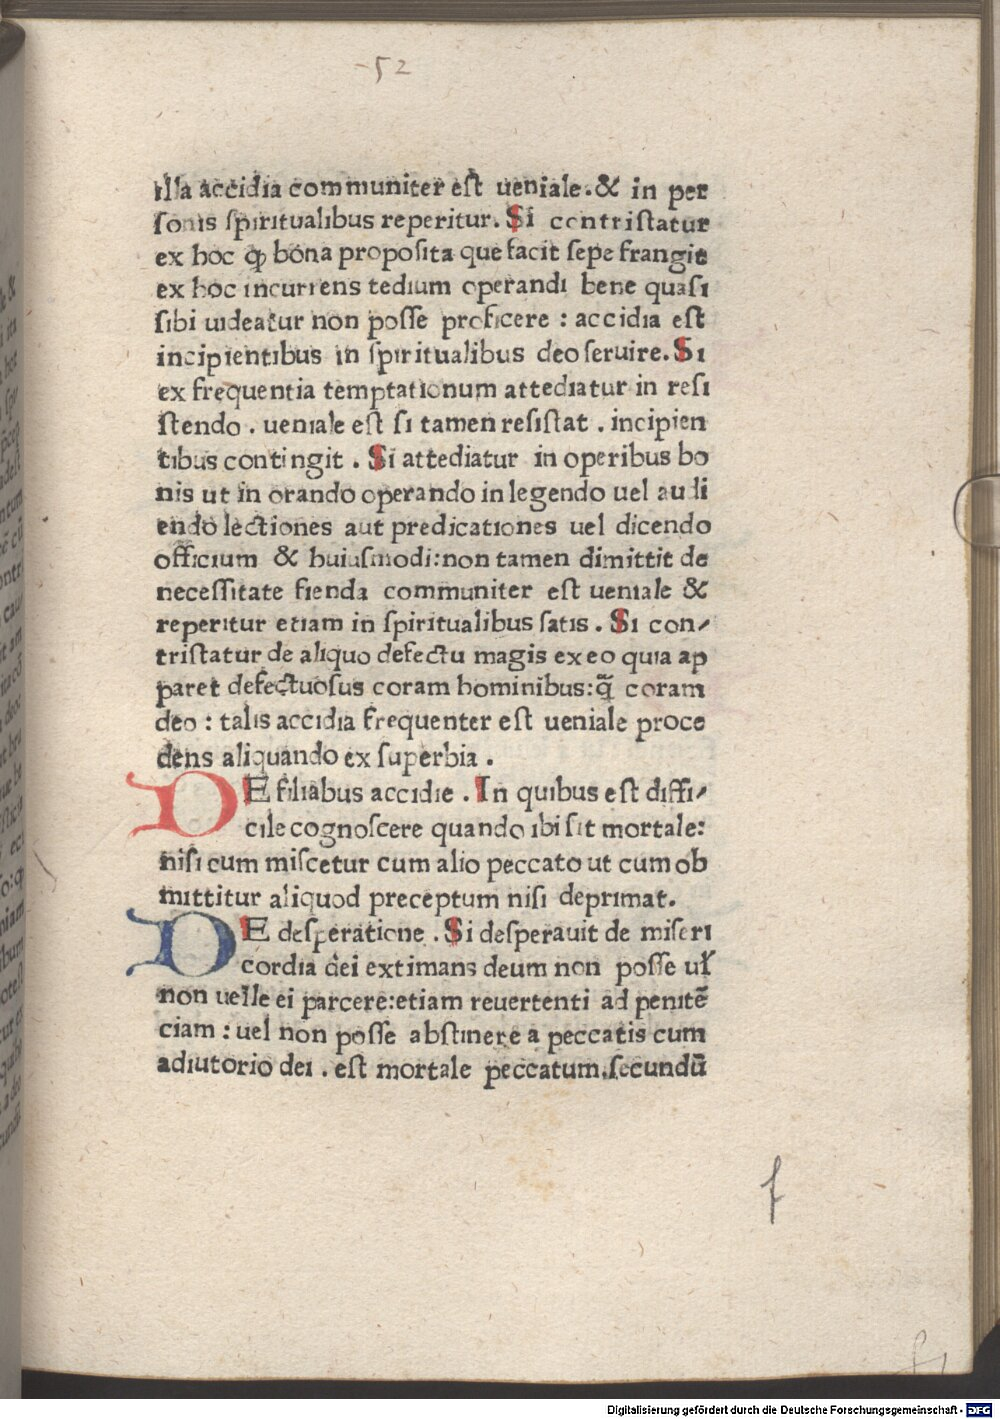 52
illa accidia communiter est ueniale.& in per
sonis spiritualibus reperitur. Si contristatur
ex hoc ꝙ bona proposita que facit sepe frangit
ex hoc incurrens tedium operandi bene quasi
sibi uideatur non posse proficere : accidia est
incipientibus in spiritualibus deo seruire. Si
ex frequentia temptationum attediatur in resi
stendo . ueniale est si tamen resistat . incipien
tibus contingit . Si attediatur in operibus bo
nis ut in orando operando in legendo uel audi
endo lectiones aut predicationes uel dicendo
officium & huiusmodi:non tamen dimittit de
necessitate fienda communiter est ueniale &
reperitur etiam in spiritualibus satis . Si con-
tristatur de aliquo defectu magis ex eo quia ap
paret defectuosus coram hominibus:q̄ coram
deo : talis accidia frequenter est ueniale proce
dens aliquando ex superbia .
DE filiabus accidie . In quibus est diffi-
cile cognoscere quando ibi sit mortale:
nisi cum miscetur cum alio peccato ut cum ob
mittitur aliquod preceptum nisi deprimat.
DE desperatione . Si desperauit de miseri
cordia dei extimans deum non posse uł
non uelle ei parcere:etiam reuertenti ad penitē
ciam : uel non posse abstinere a peccatis cum
adiutorio dei . est mortale peccatum.secundū
f
f1
Digitalisierung gefördert durch die Deutsche Forschungsgemeinschaft - DFG